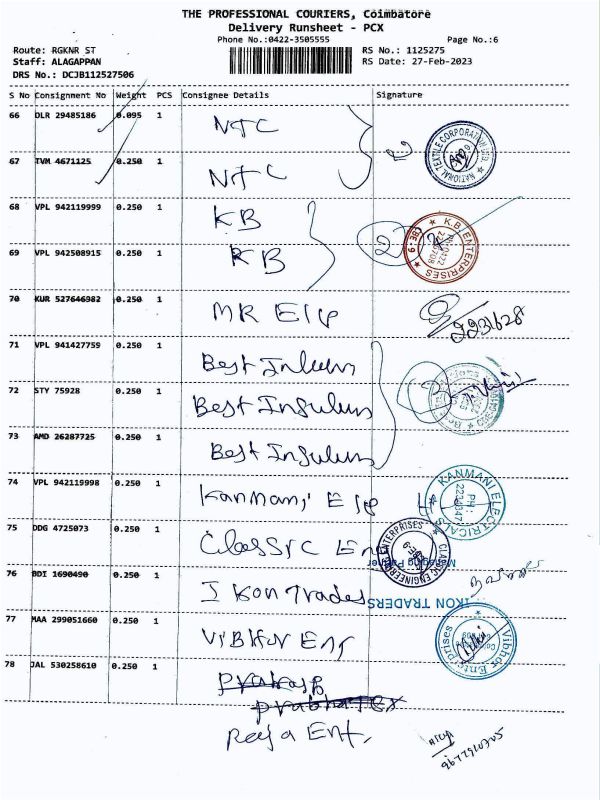 THE PROFESSIONAL COURIERS, Coimbatore
Delivery Runsheet - PCX
Phone No.:0422-3505555 Page No.:6
Route: RGKNR ST RS No.: 1125275
Staff: ALAGAPPAN RS Date: 27-Feb-2023
DRS No.: DCJB112527506
S No Consignment No Weight PCS Consignee Details Signature
66 DLR 29485186 0.095 1 NTC
NATIONAL TEXTILE CORPORATION LTD.
67 TVM 4671125 0.250 1 NTC
68 VPL 942119999 0.250 1 KB
2 K.B ENTERPRISES CBE-9
69 VPL 942508915 0.250 1 KB
70 KUR 527646982 0.250 1 MR Elp
2231628
71 VPL 941427759 0.250 1 Best Insulun
72 STY 75928 0.250 1 Best Insulun
3
73 AMD 26287725 0.250 1 Best Insulun
74 VPL 942119998 0.250 1 Kanmani Elp
KANMANI ELECTRICALS
75 DDG 4725073 0.250 1 Classic En
CLASSIC ENGINEERING ENTERPRISES
Managing Partner
76 BDI 1690490 0.250 1 Ikon Trades
IKON TRADERS
77 MAA 299051660 0.250 1 Vibhor Ent
Vibhor Enterprises
78 JAL 530258610 0.250 1 Prakash
Prabha Tex
Raja Ent.